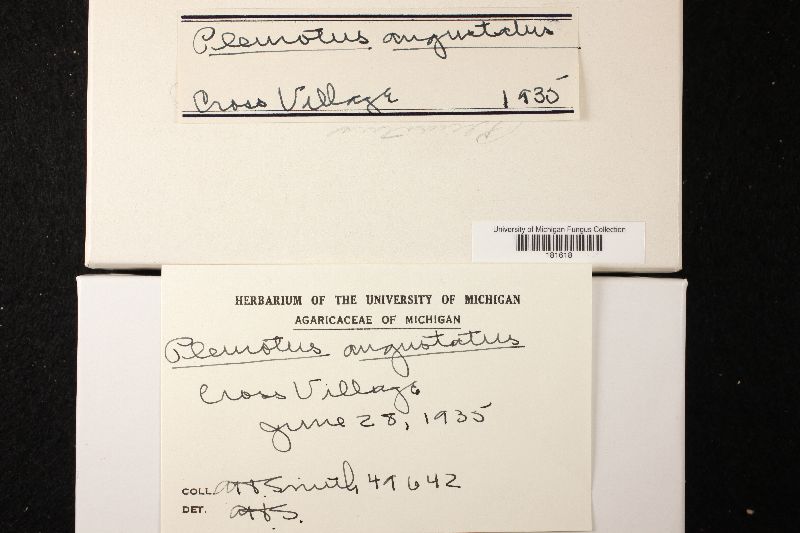 Pleurotus angustatus
Cross Village 1935
University of Michigan Fungus Collection
181618
HERBARIUM OF THE UNIVERSITY OF MICHIGAN
AGARICACEAE OF MICHIGAN
Pleurotus angustatus
Cross Village
June 28, 1935
COLL. AHSmith 49642
DET. AHS.